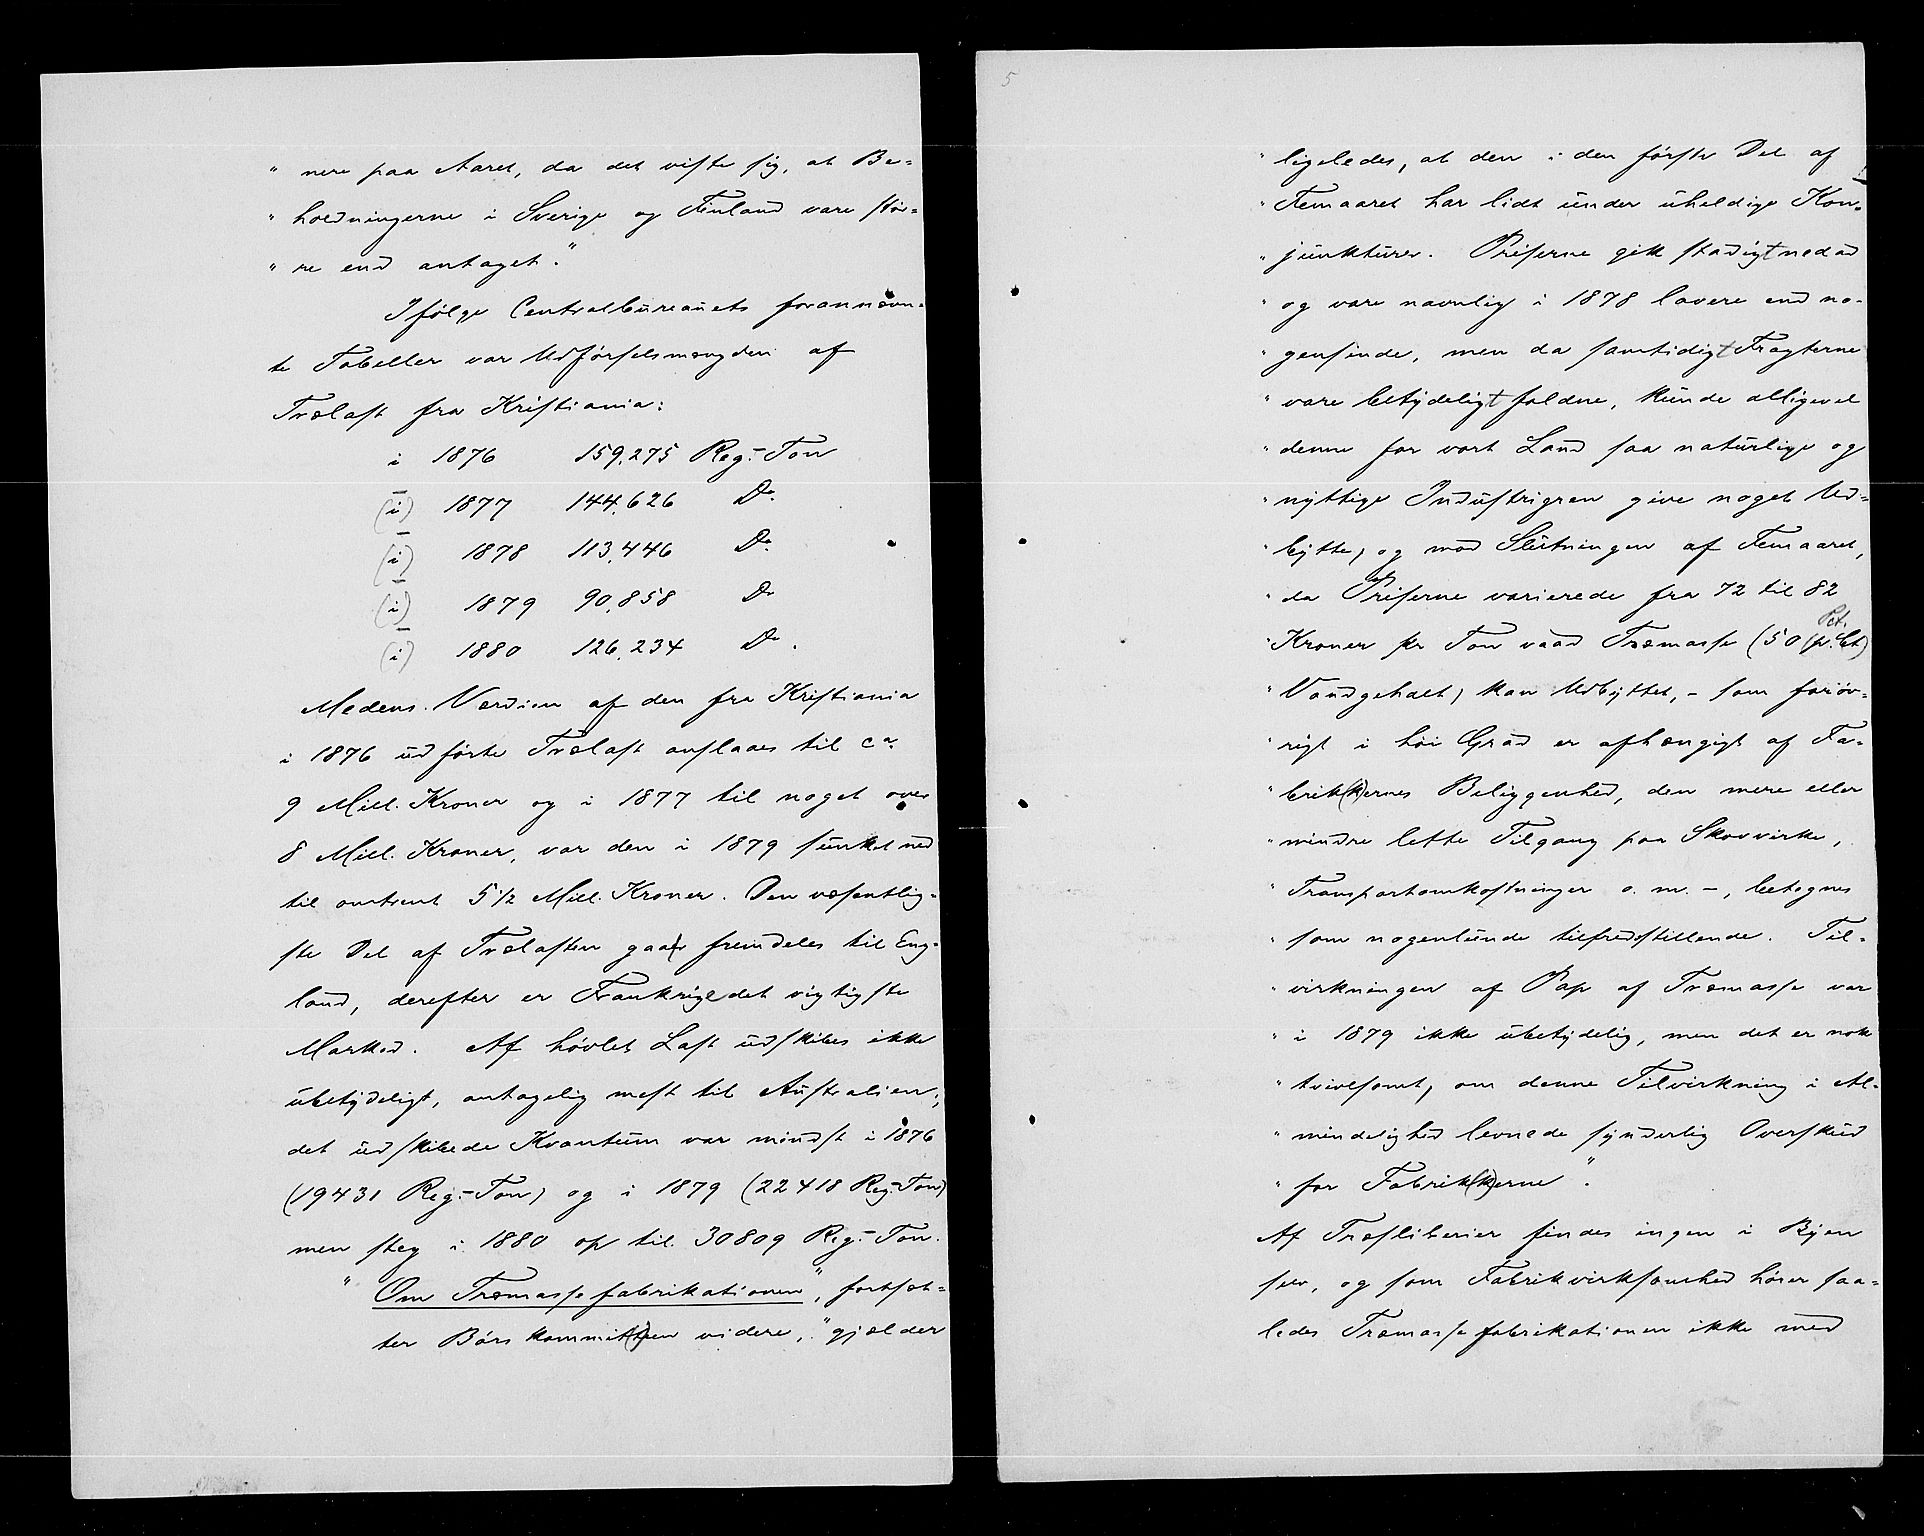 " nere paa Aaret, da det viste sig, at Be-
" holdningerne i Sverige og Finland vare stør-
" re end antaget."
Ifølge Centralbureauets forannævn-
te Tabeller var Udførselsmængden af
Trælast fra Kristiania:
i 1876 159,275 Reg.-Ton
(i) 1877 144,626 Do.
(i) 1878 113,446 Do.
(i) 1879 90,858 Do
(i) 1880 126,234 Do.
Medens Værdien af den fra Kristiania
i 1876 udførte Trælast anslaaes til ca.
9 Mill. Kroner og i 1877 til noget over
8 Mill. Kroner, var den i 1879 sunket ned
til omtrent 5 1/2 Mill. Kroner. Den væsentlig-
ste Del af Trælasten gaar fremdeles til Eng-
land, derefter er Frankrige det vigtigste
Marked. Af høvlet Last udskibes ikke
ubetydeligt, antagelig mest til Australien;
det udskibede Kvantum var mindst i 1876
(19431 Reg.-Ton) og i 1879 (22418 Reg.-Ton)
men steg i 1880 op til 30809 Reg.-Ton.
" Om Træmassefabrikationen", fortsæt-
ter Børskommitt(e)en videre, "gjælder
5
" ligeledes, at den i den første Del af
" Femaaret har lidt under uheldige Kon-
" junkturer. Priserne gik stadigt nedad
" og vare navnlig i 1878 lavere end no-
" gensinde, men da samtidigt Fragterne
" vare betydeligt faldne, kunde alligevel
" denne for vort Land saa naturlige og
" nyttige Industrigren give noget Ud-
" bytte, og mod Slutningen af Femaaret,
" da Priserne varierede fra 72 til 82
Pct.
" Kroner pr Ton vaad Træmasse (50 p. Ct)
" Vandgehalt, kan Udbyttet, - som forøv-
" rigt i høi Grad er afhængigt af Fa-
" brik(k)ernes Beliggenhed, den mere eller
" mindre lette Tilgang paa Skovvirke,
" Transportomkostninger o. m. -, betegnes
" som nogenlunde tilfredstillende. Til-
" virkningen af Pap af Træmasse var
" i 1879 ikke ubetydelig, men det er nok
" tvivlsomt, om denne Tilvirkning i Al-
" mindelighed levnede synderlig Overskud
" for Fabrik(k)erne".
Af Træsliberier findes ingen i Byen
selv, og som Fabrikvirksomhed hører saa-
ledes Træmassefabrikationen ikke med